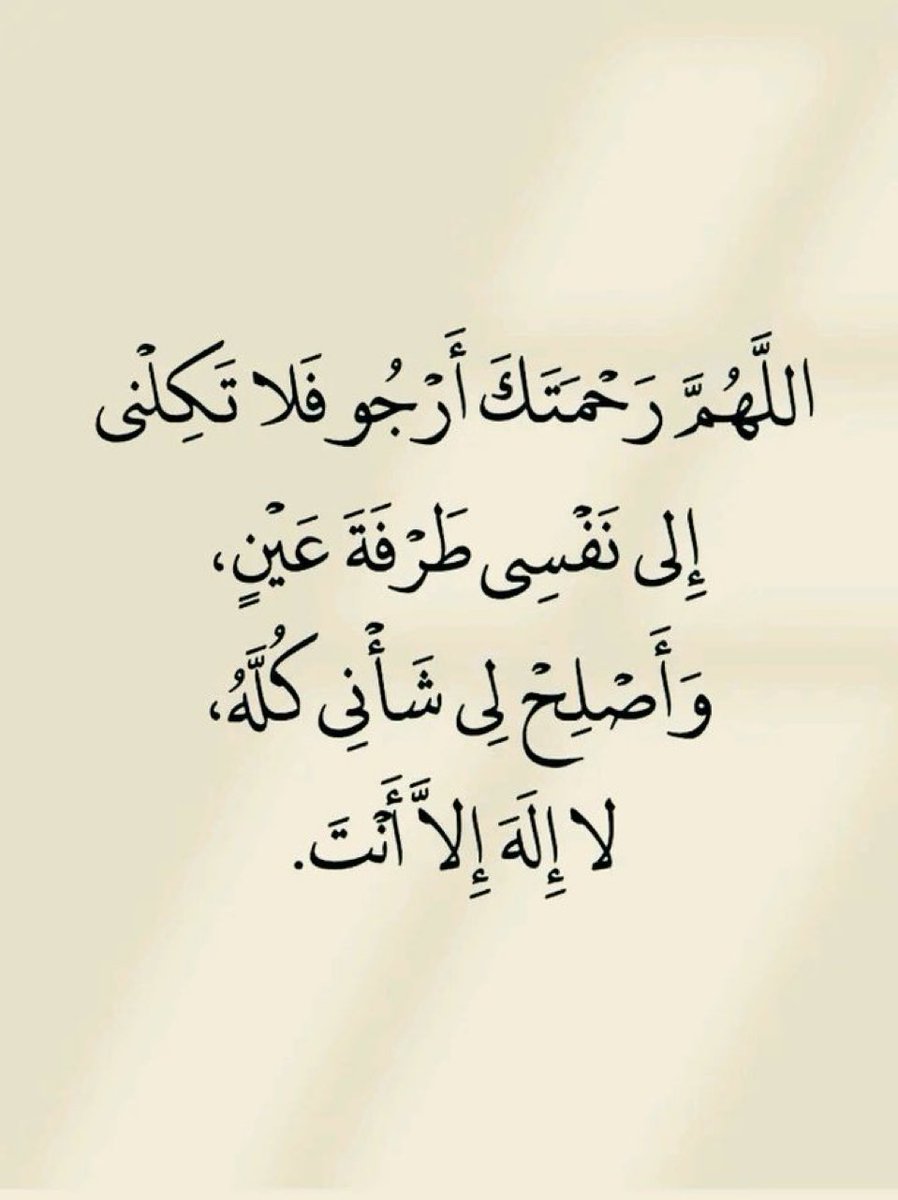 اللَّهُمَّ رَحْمَتَكَ أَرْجُو فَلا تَكِلْنى
إِلى نَفْسِى طَرْفَةَ عَيْنٍ،
وَأَصْلِحْ لِى شَأْنِى كُلَّهُ،
لا إِلهَ إِلاَّ أَنْتَ.